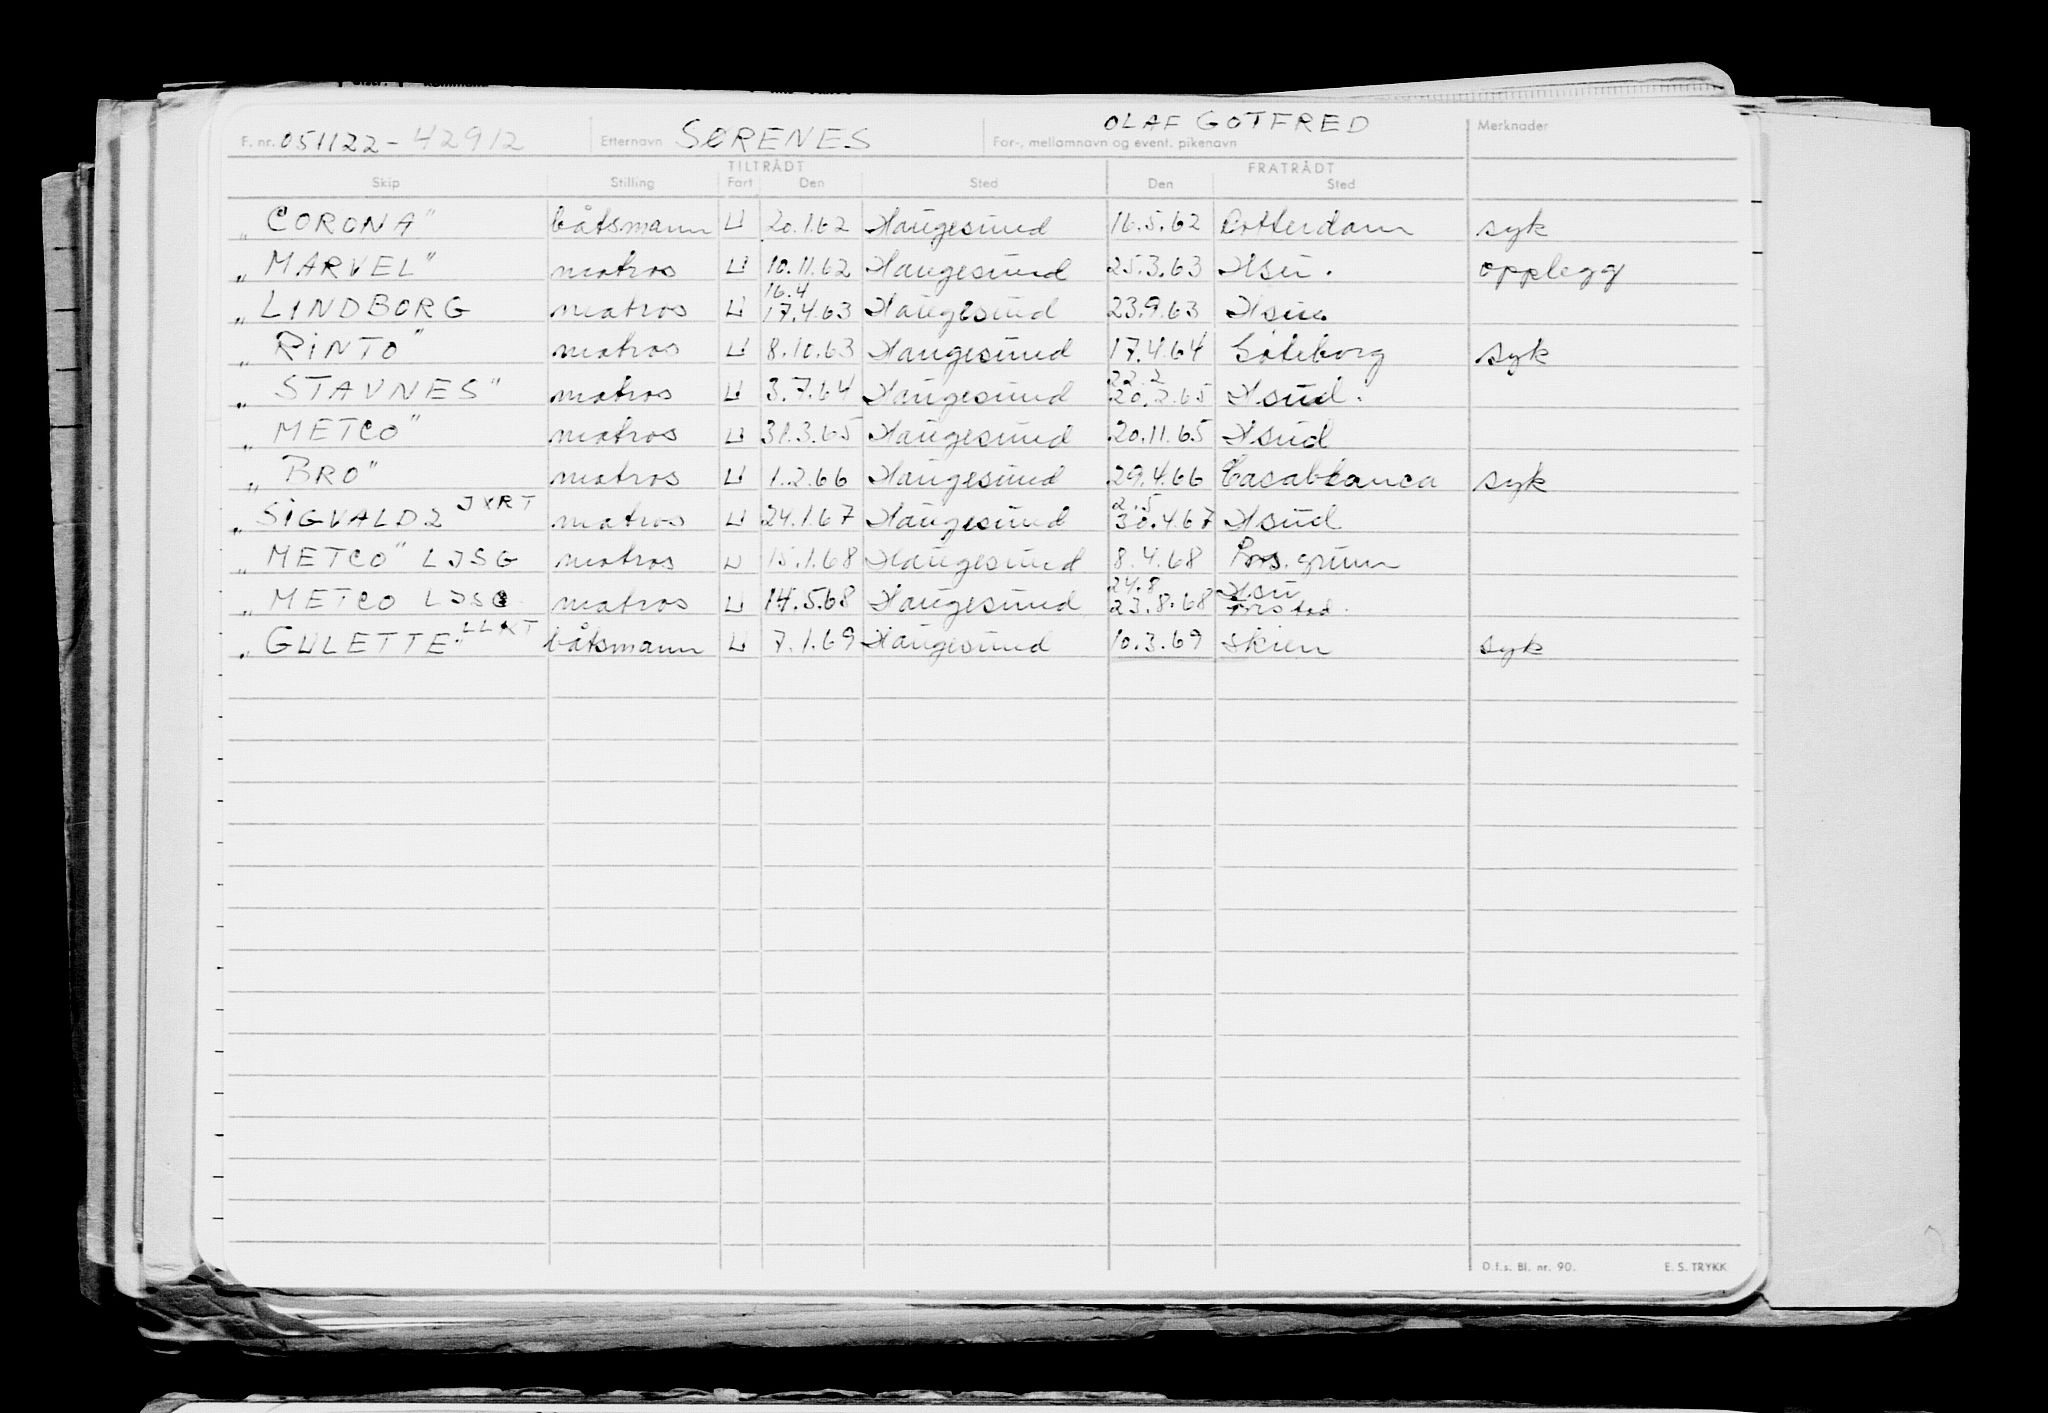 F. nr. 051122-42912 Etternavn SØRENES For-, mellomnavn og event. pikenavn OLAF GOTFRED Merknader
TILTRÅDT FRATRÅDT
Skip Stilling Fart Den Sted Den Sted
„CORONA" båtsmann U 20.1.62 Haugesund 16.5.62 Rotterdam syk
„MARVEL" matros U 10.11.62 Haugesund 25.3.63 Hsu. opplegg
16.4
„LINDBORG matros U 17.4.63 Haugesund 23.9.63 Hsu.
„RINTO" matros U 8.10.63 Haugesund 17.4.64 Göteborg syk
22.2
„STAVNES" matros U 3.7.64 Haugesund 20.2.65 Hsud.
„METCO" matros U 31.3.65 Haugesund 20.11.65 Hsud
„BRO" matros U 1.2.66 Haugesund 29.4.66 Casablanca syk
2.5
„SIGVALD2 JXRT matros U 24.1.67 Haugesund 30.4.67 Hsud
„METCO" LJSG matros U 15.1.68 Haugesund 8.4.68 Pors.grunn
24.8 Hsu
„METCO LJSG matros U 14.5.68 Haugesund 23.8.68
„GULETTE. LLKT båtsmann U 7.1.69 Haugesund 10.3.69 Skien syk
D.f.s. Bl. nr. 90. E. S. TRYKK